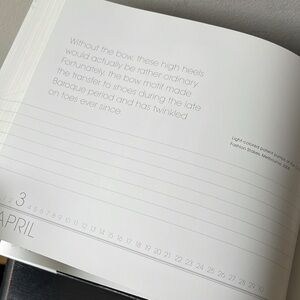 Without the bow, these high heels
would actually be rather ordinary.
Fortunately, the bow motif made
the transfer to shoes during the late
Baroque period and has twinkled
on toes ever since.
Light-colored patent pumps at the
Fashion Stakes, Melbourne, 2004
3
4 5 6 7 8 9 10 11 12 13 14 15 16 17 18 19 20 21 22 23 24 25 26 27 28 29 30
APRIL